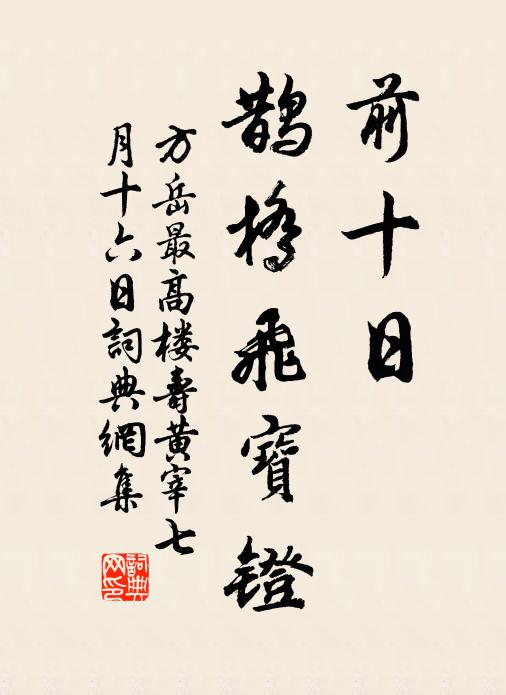 前十日
鹊橋飛寶鐙
方岳最高楼壽黄宰七
月十六日詞典網集
詞典
网印